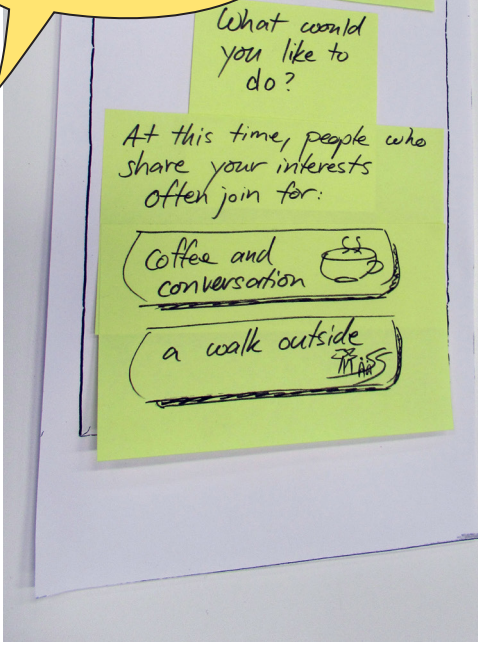 What would
you like to
do?
At this time, people who
share your interests
often join for:
coffee and
conversation
a walk outside